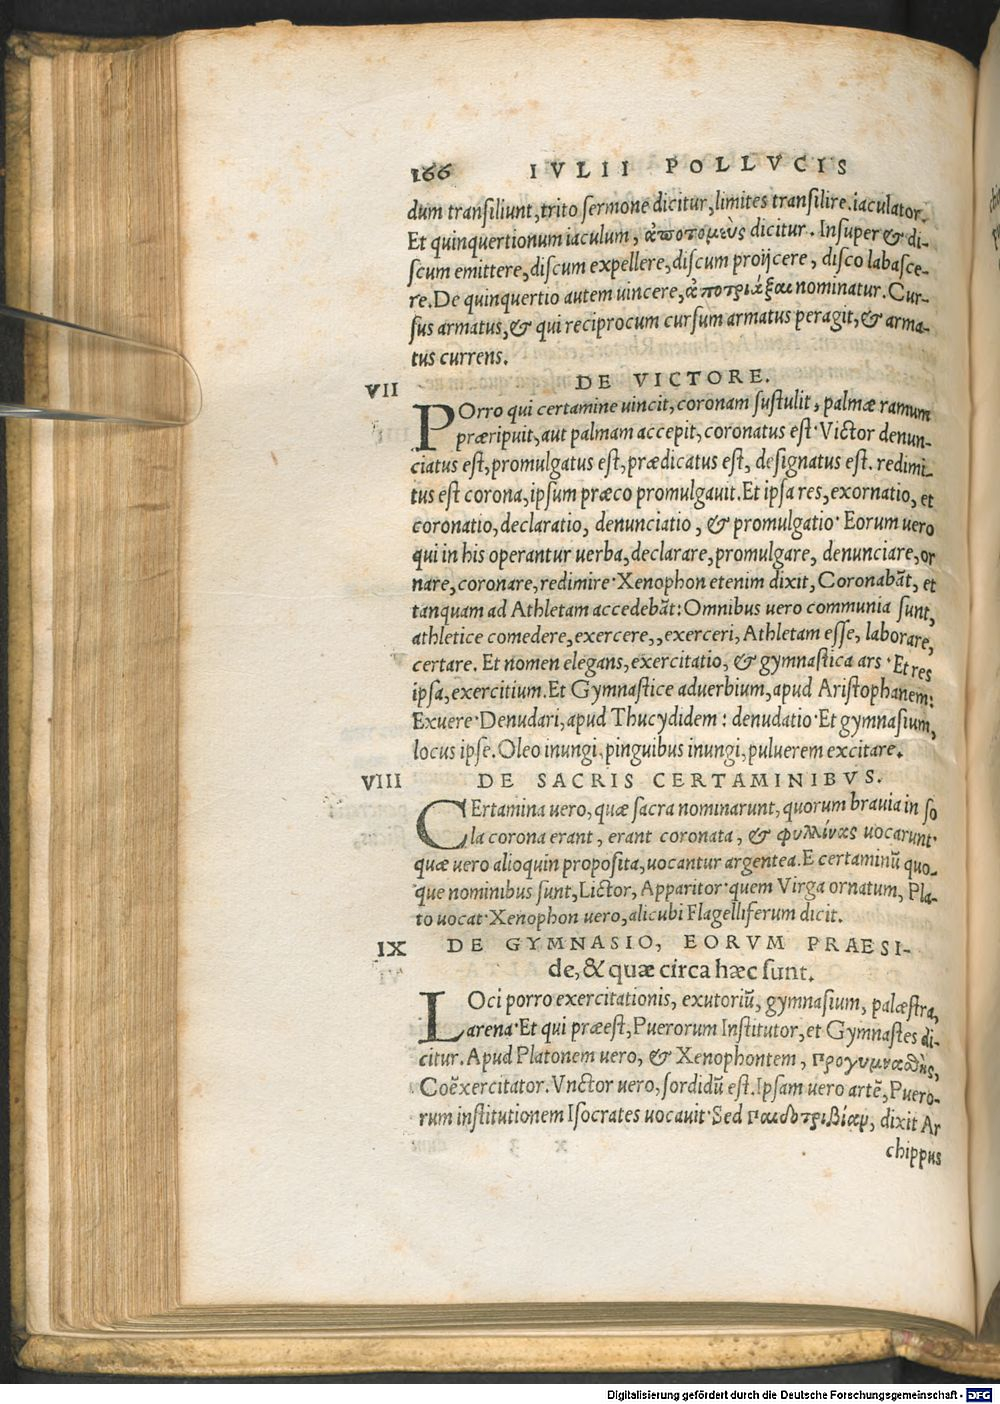 166 IVLII POLLVCIS
dum transiliunt, trito sermone dicitur, limites transilire. iaculator.
Et quinquertionum iaculum, ἀποτομεὺς dicitur. Insuper & di-
scum emittere, discum expellere, discum proijcere, disco labasce-
re. De quinquertio autem uincere, ἀποτριάξαι nominatur. Cur-
sus armatus, & qui reciprocum cursum armatus peragit, & arma-
tus currens.
VII DE VICTORE.
POrro qui certamine uincit, coronam sustulit, palmæ ramum
præripuit, aut palmam accepit, coronatus est· Victor denun-
ciatus est, promulgatus est, prædicatus est, designatus est. redimi-
tus est corona, ipsum præco promulgauit. Et ipsa res, exornatio, et
coronatio, declaratio, denunciatio, & promulgatio· Eorum uero
qui in his operantur uerba, declarare, promulgare, denunciare, or
nare, coronare, redimire· Xenophon etenim dixit, Coronabãt, et
tanquam ad Athletam accedebãt: Omnibus uero communia sunt,
athletice comedere, exercere,, exerceri, Athletam esse, laborare,
certare. Et nomen elegans, exercitatio, & gymnastica ars· Et res
ipsa, exercitium. Et Gymnastice aduerbium, apud Aristophanem:
Exuere· Denudari, apud Thucydidem: denudatio· Et gymnasium,
locus ipse. Oleo inungi, pinguibus inungi, puluerem excitare.
VIII DE SACRIS CERTAMINIBVS.
CErtamina uero, quæ sacra nominarunt, quorum brauia in so
la corona erant, erant coronata, & φυλλίνας uocarunt·
quæ uero alioquin proposita, uocantur argentea. E certaminũ quo-
que nominibus sunt, Lictor, Apparitor· quem Virga ornatum, Pla-
to uocat· Xenophon uero, alicubi Flagelliferum dicit.
IX DE GYMNASIO, EORVM PRAESI-
de, & quæ circa hæc sunt.
LOci porro exercitationis, exutoriũ, gymnasium, palæstra,
arena· Et qui præest, Puerorum Institutor, et Gymnastes di-
citur. Apud Platonem uero, & Xenophontem, προγυμναστὴς,
Coẽxercitator. Vnctor uero, sordidũ est. Ipsam uero artẽ, Puero-
rum institutionem Isocrates uocauit· Sed παιδοτριβίαν, dixit Ar
chippus
Digitalisierung gefördert durch die Deutsche Forschungsgemeinschaft - DFG